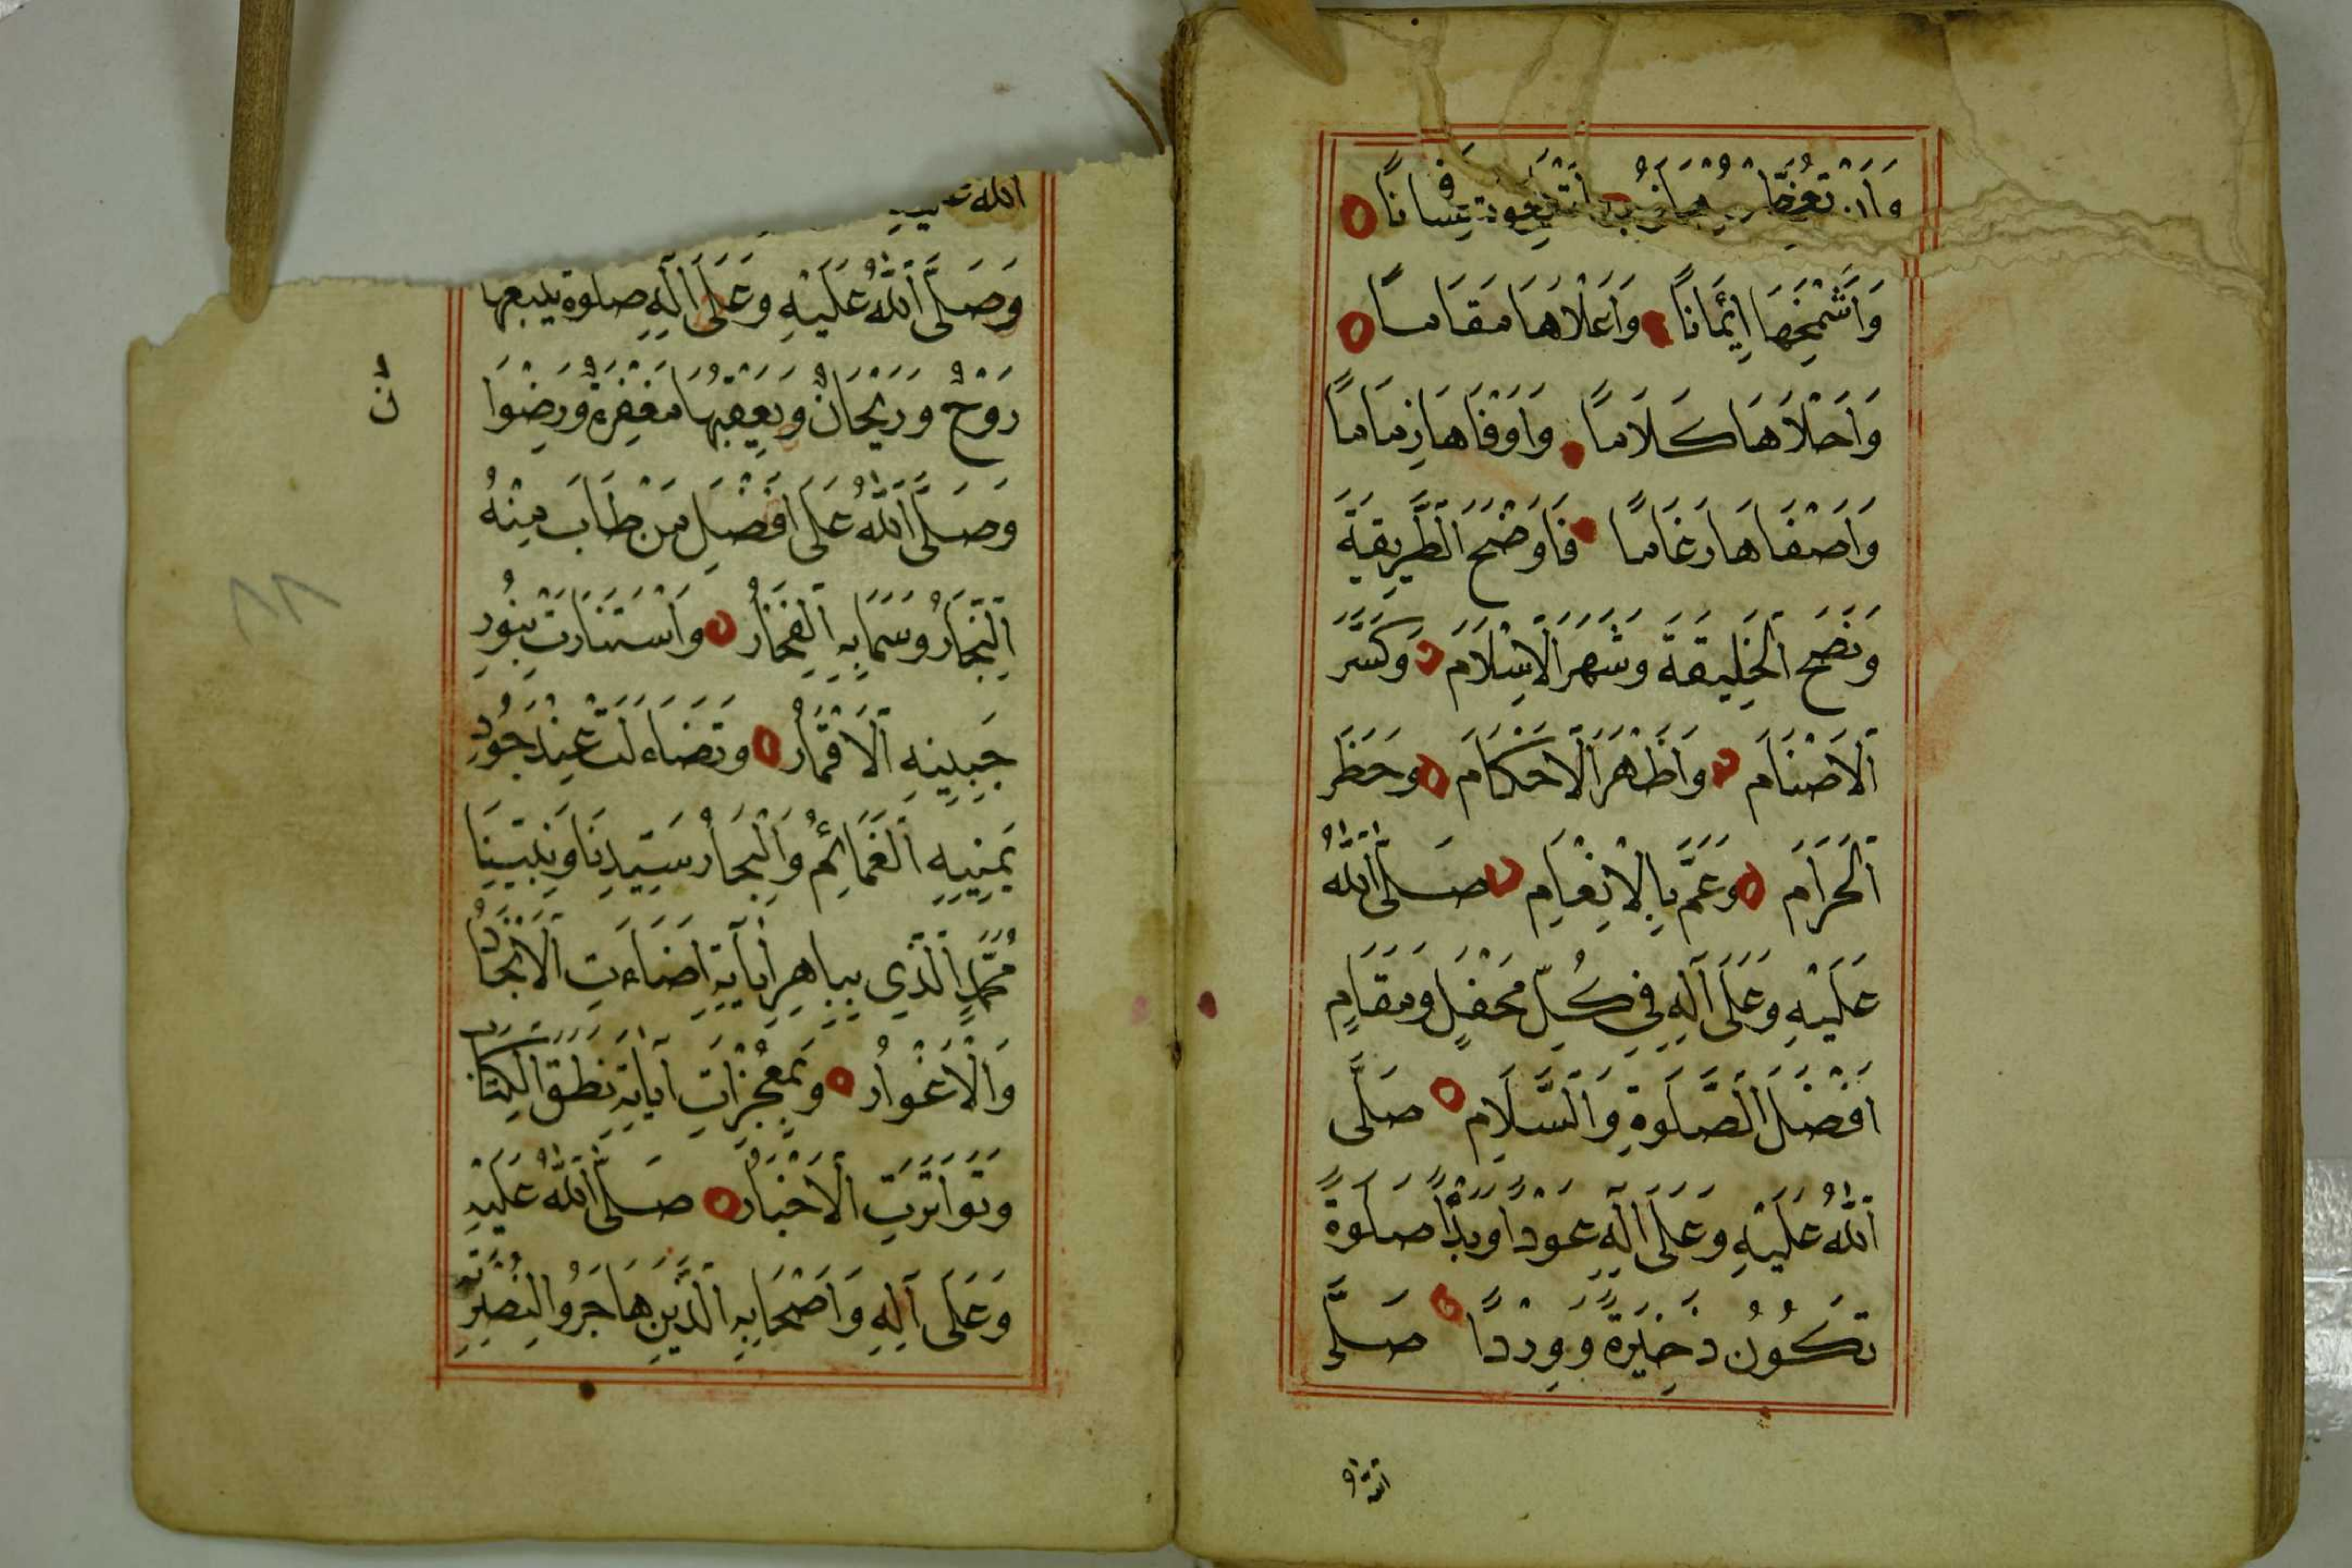 وَاَشْمَخِهَا اِيْمَانًا وَاَعْلَاهَا مَقَامًا
وَاَحْلَاهَا كَلَامًا وَاَوْفَاهَا زِمَامًا
وَاَصْفَاهَا رَغَامًا فَاَوْضَحَ الطَّرِيقَةَ
وَنَصَحَ الْخَلِيقَةَ وَشَهَرَ الْاِسْلَامَ وَكَسَّرَ
الْاَصْنَامَ وَاَظْهَرَ الْاَحْكَامَ وَحَظَرَ
الْحَرَامَ وَعَمَّ بِالْاِنْعَامِ صَلَّى اللهُ
عَلَيْهِ وَعَلَى آلِهِ فِي كُلِّ مَحْفَلٍ وَمَقَامٍ
اَفْضَلَ الصَّلَوةِ وَالسَّلَامِ صَلَّى
اللهُ عَلَيْهِ وَعَلَى اٰلِهِ عَوْدًا وَبَدْأً صَلَوةً
تَكُوْنُ ذَخِيْرَةً وَوِرْدًا صَلَّى
الله
الله
وَصَلَّى اللهُ عَلَيْهِ وَعَلَى اٰلِهِ صلوة يتبعها
رَوْحٌ وَرَيْحَانٌ وَيَعْقِبُهَا مَغْفِرَةٌ وَرِضْوَا
نٌ
وَصَلَّى اللهُ عَلَى اَفْضَلِ مَنْ طَابَ مِنْهُ
النِّجَارُ وَسَمَا بِهِ الْفِخَارُ وَاسْتَنَارَتْ بِنُورِ
جَبِينِهِ الْاَقْمَارُ وَتَضَاءلَتْ عِنْدَ جُودِ
يَمِيْنِهِ الْغَمَائِمُ وَالْبِحَارُ سَيِّدِنَا وَنَبِيِّنَا
مُحَمَّدٍ الَّذِي بِبَاهِرِ اٰيَاتِهِ اَضَاءَتِ الْاَنْجَادُ
وَالْاَغْوَارُ وَبِمُعْجِزَاتِ آيَاتِهِ نَطَقَ الْكِتَابُ
وَتَوَاتَرَتِ الْاَخْبَارُ صَلَّى اللهُ عَلَيْهِ
وَعَلَى آلِهِ وَاَصْحَابِهِ الَّذِينَ هَاجَرُوا لِنُصْرَتِهِ
٨٨